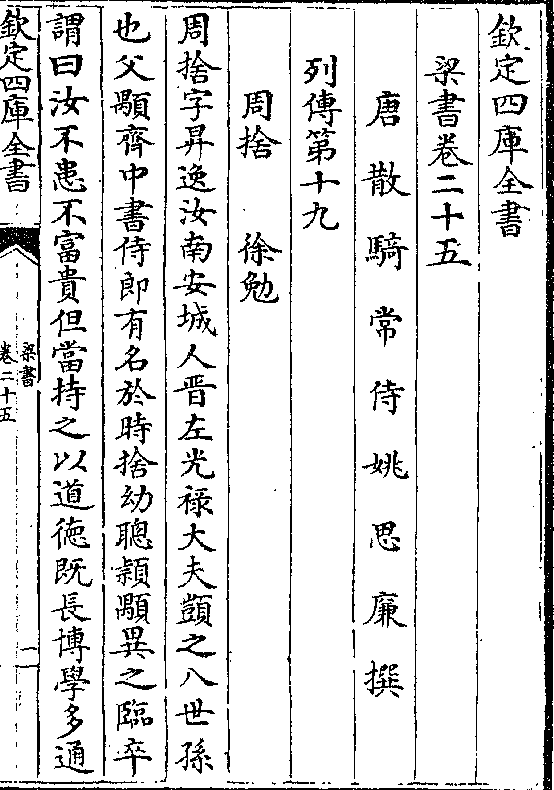 欽定四庫全書
梁書卷二十五
唐散騎常侍姚思廉撰
列傳第十九
周捨　徐勉
周捨字昇逸汝南安城人晋左光禄大夫顗之八世孫
也父顒齊中書侍郎有名於時捨幼聰潁顒異之臨卒
謂曰汝不患不富貴但當持之以道德既長博學多通
欽定四庫全書
梁書
卷二十五
一